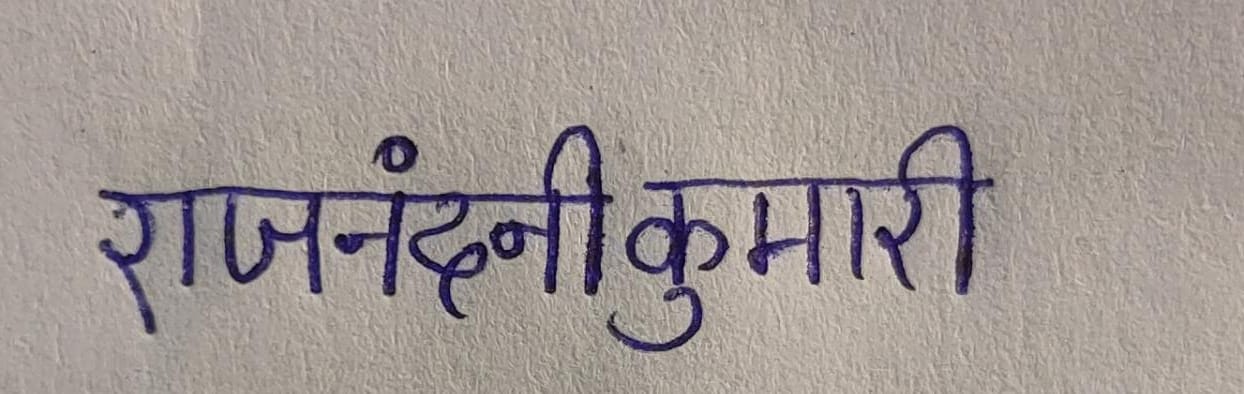 राजनंदनी कुमारी